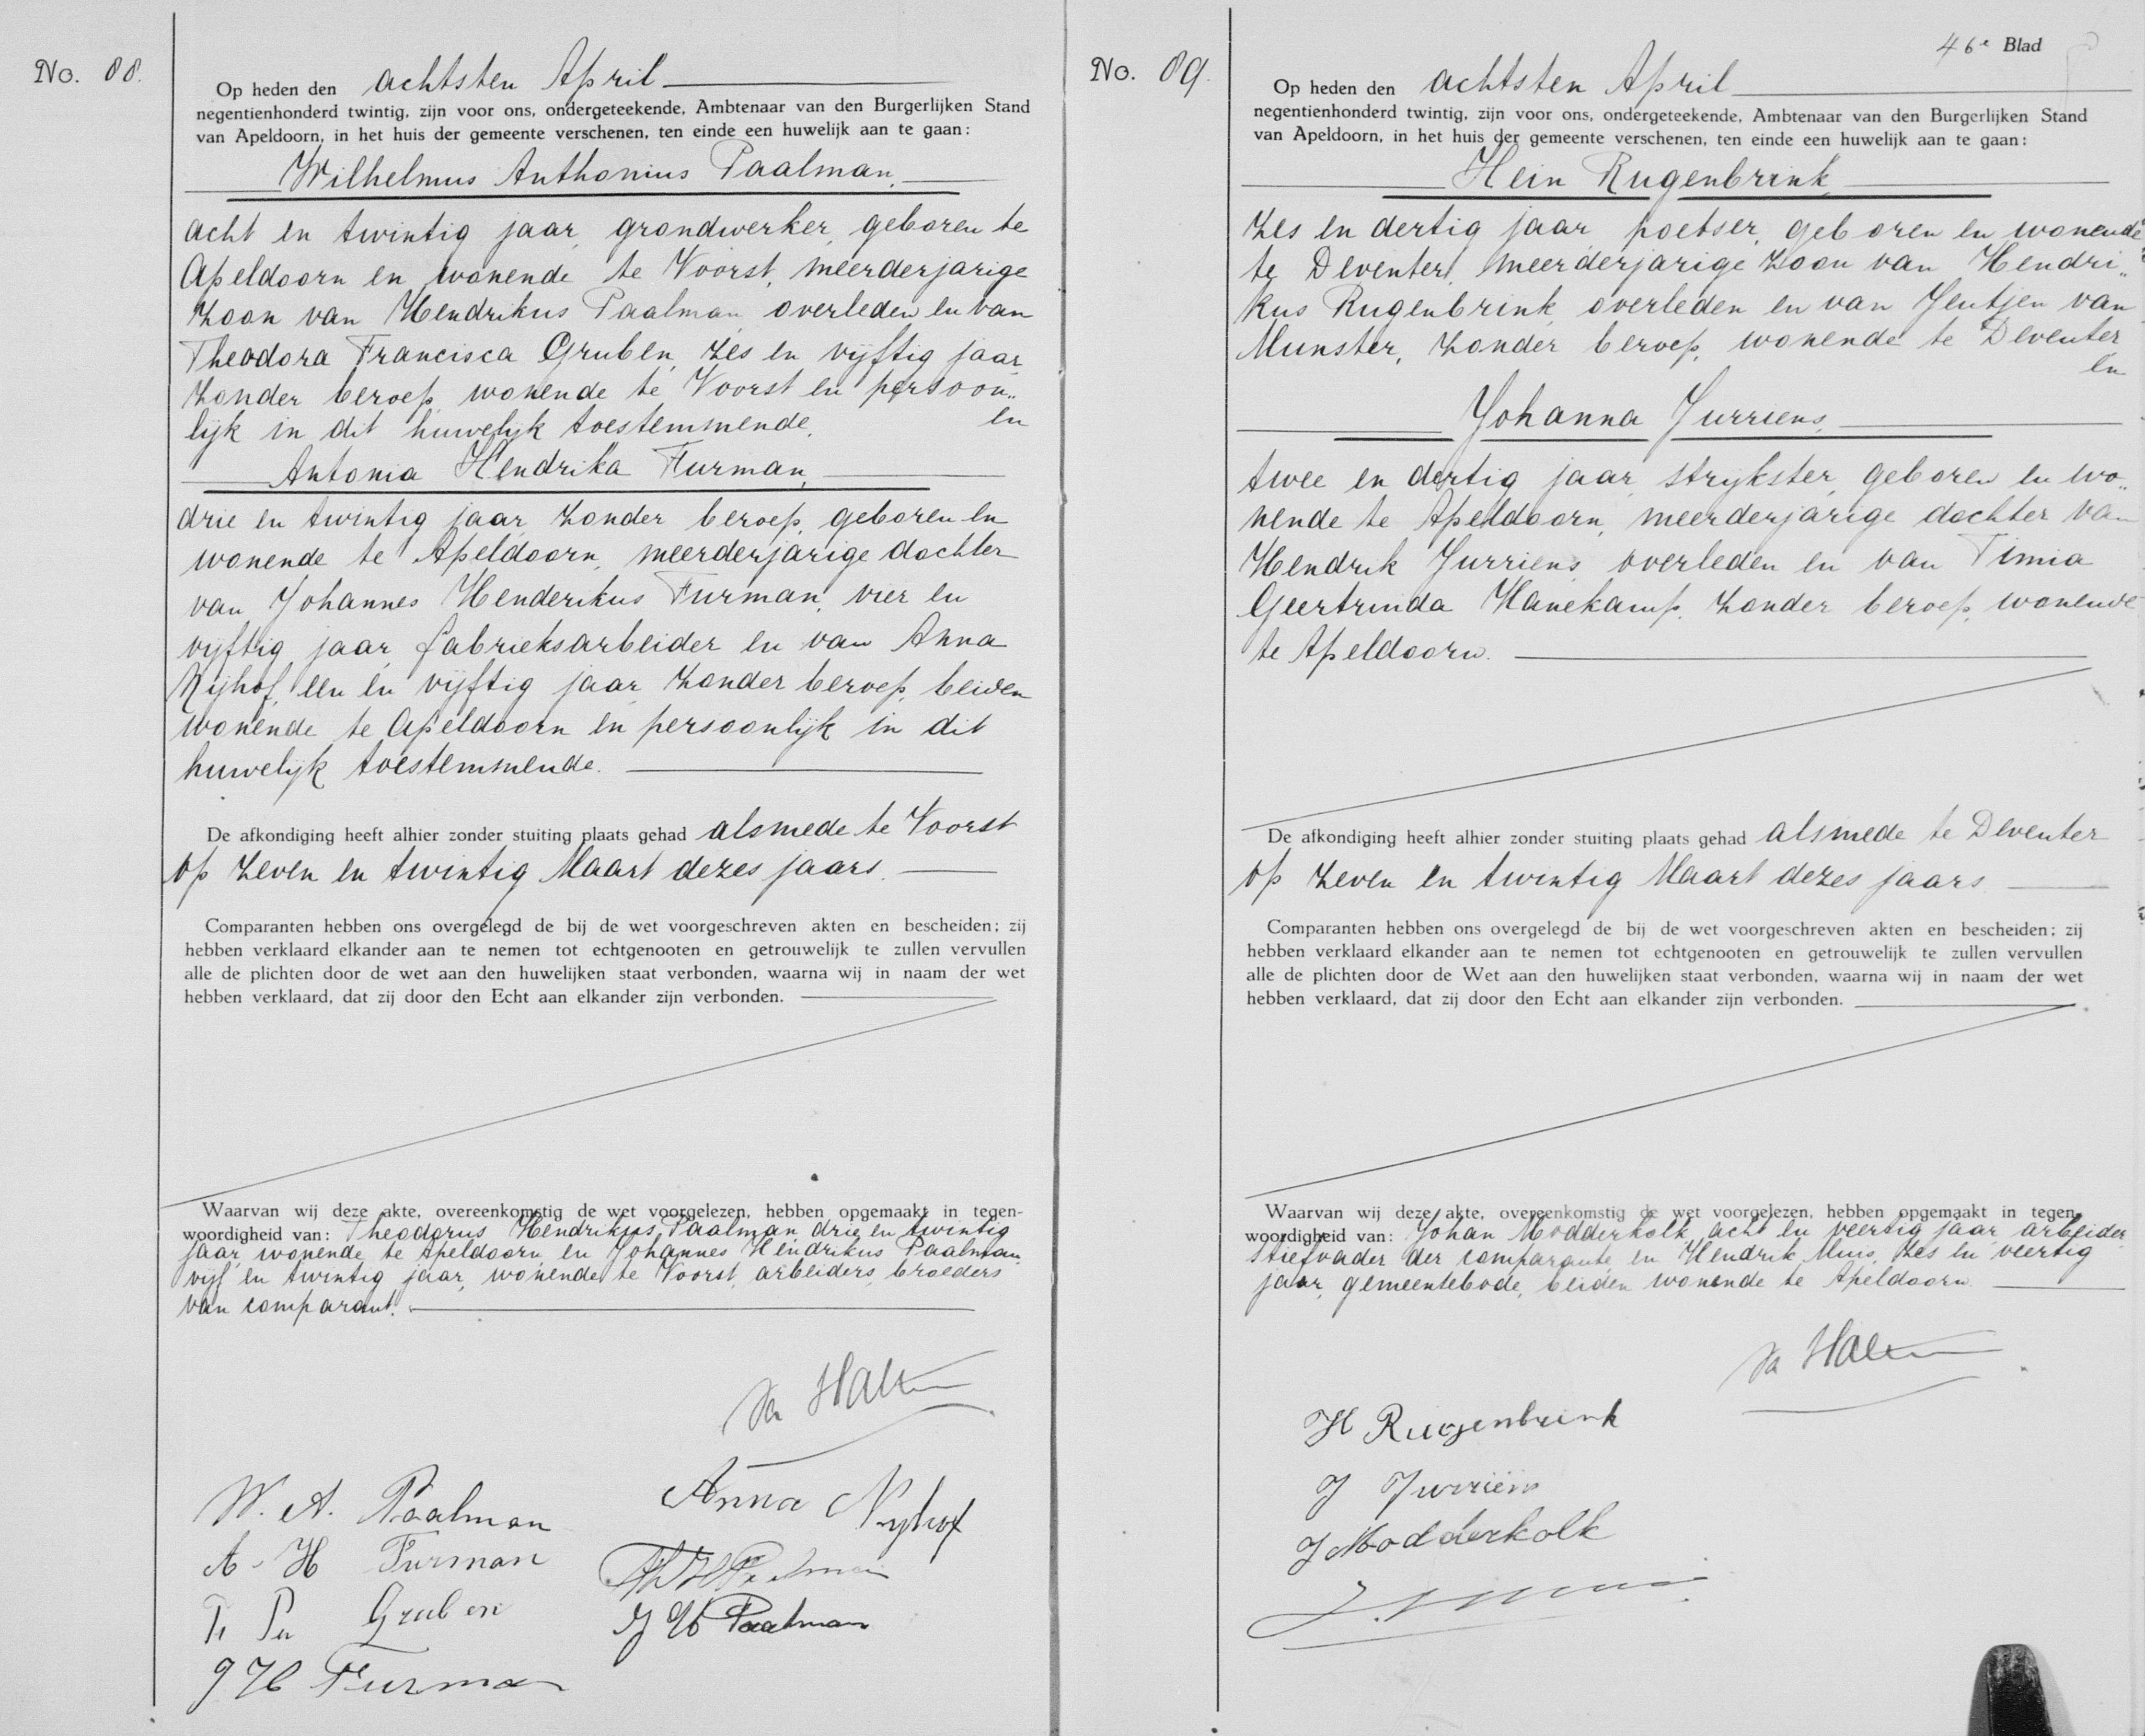 No. 88.
Op heden den achtsten April
negentienhonderd twintig, zijn voor ons, ondergeteekende, Ambtenaar van den Burgerlijken Stand
van Apeldoorn, in het huis der gemeente verschenen, ten einde een huwelijk aan te gaan:
Wilhelmus Anthonius Paalman,
acht en twintig jaar, grondwerker, geboren te
Apeldoorn en wonende te Voorst, meerderjarige
zoon van Hendrikus Paalman, overleden en van
Theodora Francisca Gruben, zes en vijftig jaar,
zonder beroep, wonende te Voorst en persoon„
lijk in dit huwelijk toestemmende, en
Antonia Hendrika Furman,
drie en twintig jaar, zonder beroep, geboren en
wonende te Apeldoorn, meerderjarige dochter
van Johannes Henderikus Furman, vier en
vijftig jaar, fabrieksarbeider en van Anna
Nijhof, een en vijftig jaar, zonder beroep, beiden
wonende te Apeldoorn en persoonlijk in dit
huwelijk toestemmende.
De afkondiging heeft alhier zonder stuiting plaats gehad alsmede te Voorst
op zeven en twintig Maart dezes jaars.
Comparanten hebben ons overgelegd de bij de wet voorgeschreven akten en bescheiden; zij
hebben verklaard elkander aan te nemen tot echtgenooten en getrouwelijk te zullen vervullen
alle de plichten door de wet aan den huwelijken staat verbonden, waarna wij in naam der wet
hebben verklaard, dat zij door den Echt aan elkander zijn verbonden.
Waarvan wij deze akte, overeenkomstig de wet voorgelezen, hebben opgemaakt in tegen-
woordigheid van: Theodorus Hendrikus Paalman, drie en twintig
jaar, wonende te Apeldoorn en Johannes Hendrikus Paalman,
vijf en twintig jaar, wonende te Voorst, arbeiders, broeders
van comparant.
W. A. Paalman
Anna Nyhof
A. H Furman
Gruben
J H Paalman
J H Furman
46e Blad
No. 89.
Op heden den achtsten April
negentienhonderd twintig, zijn voor ons, ondergeteekende, Ambtenaar van den Burgerlijken Stand
van Apeldoorn, in het huis der gemeente verschenen, ten einde een huwelijk aan te gaan:
Hein Rugenbrink,
zes en dertig jaar, poetser, geboren en wonende
te Deventer, meerderjarige zoon van Hendri„
kus Rugenbrink, overleden en van Jentjen van
Munster, zonder beroep, wonende te Deventer
en
Johanna Jurriens,
twee en dertig jaar, strijkster, geboren en wo„
nende te Apeldoorn, meerderjarige dochter van
Hendrik Jurriens, overleden en van Timia
Geertruida Hanekamp, zonder beroep, wonende
te Apeldoorn.
De afkondiging heeft alhier zonder stuiting plaats gehad alsmede te Deventer
op zeven en twintig Maart dezes jaars.
Comparanten hebben ons overgelegd de bij de wet voorgeschreven akten en bescheiden; zij
hebben verklaard elkander aan te nemen tot echtgenooten en getrouwelijk te zullen vervullen
alle de plichten door de Wet aan den huwelijken staat verbonden, waarna wij in naam der wet
hebben verklaard, dat zij door den Echt aan elkander zijn verbonden.
Waarvan wij deze akte, overeenkomstig de wet voorgelezen, hebben opgemaakt in tegen-
woordigheid van: Johan Modderkolk, acht en veertig jaar, arbeider,
stiefvader der comparante en Hendrik Muis, zes en veertig
jaar, gemeentebode, beiden wonende te Apeldoorn.
H Rugenbrink
J Jurriens
J Modderkolk